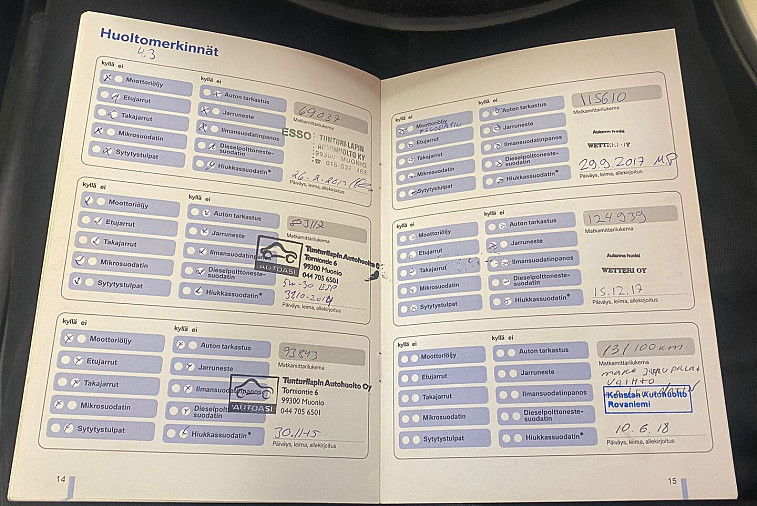 Huoltomerkinnät
4,3
kyllä ei
kyllä ei
Moottoriöljy
Auton tarkastus
Etujarrut
Jarruneste
Takajarrut
Ilmansuodatinpanos
Mikrosuodatin
Dieselpolttoneste-
suodatin
Sytytystulpat
Hiukkassuodatin*
69037
Matkamittarilukema
ESSO
TUNTURILAPIN
AUTOHUOLTO KY
99300 MUONIO
016-532 462
Päiväys, leima, allekirjoitus
kyllä ei
kyllä ei
Moottoriöljy
Auton tarkastus
Etujarrut
Jarruneste
Takajarrut
Ilmansuodatinpanos
Mikrosuodatin
Dieselpolttoneste-
suodatin
Sytytystulpat
Hiukkassuodatin*
Matkamittarilukema
AUTOASI
Tunturilapin Autohuolto Oy
Torniontie 6
99300 Muonio
044 705 6501
5W-30
Päiväys, leima, allekirjoitus
kyllä ei
kyllä ei
Moottoriöljy
Auton tarkastus
Etujarrut
Jarruneste
Takajarrut
Ilmansuodatinpanos
Mikrosuodatin
Dieselpolttoneste-
suodatin
Sytytystulpat
Hiukkassuodatin*
93843
Matkamittarilukema
AUTOASI
Tunturilapin Autohuolto Oy
Torniontie 6
99300 Muonio
044 705 6501
30.11-15
Päiväys, leima, allekirjoitus
14
kyllä ei
kyllä ei
Moottoriöljy
Auton tarkastus
Etujarrut
Jarruneste
Takajarrut
Ilmansuodatinpanos
Mikrosuodatin
Dieselpolttoneste-
suodatin
Sytytystulpat
Hiukkassuodatin*
115610
Matkamittarilukema
WETTERI OY
29.9.2017 MP
Päiväys, leima, allekirjoitus
kyllä ei
kyllä ei
Moottoriöljy
Auton tarkastus
Etujarrut
Jarruneste
Takajarrut
Ilmansuodatinpanos
Mikrosuodatin
Dieselpolttoneste-
suodatin
Sytytystulpat
Hiukkassuodatin*
124939
Matkamittarilukema
WETTERI OY
15.12.17
Päiväys, leima, allekirjoitus
kyllä ei
kyllä ei
Moottoriöljy
Auton tarkastus
Etujarrut
Jarruneste
Takajarrut
Ilmansuodatinpanos
Mikrosuodatin
Dieselpolttoneste-
suodatin
Sytytystulpat
Hiukkassuodatin*
131100km
Matkamittarilukema
VAIHTO
Konstan Autohuolto
Rovaniemi
10.6.18
Päiväys, leima, allekirjoitus
15